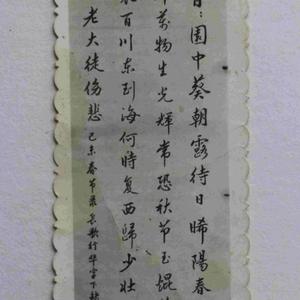 園中葵朝露待日晞陽春
萬物生光輝常恐秋節至焜
百川东到海何時复西歸少壮
老大徒傷悲 己未春节录長歌行